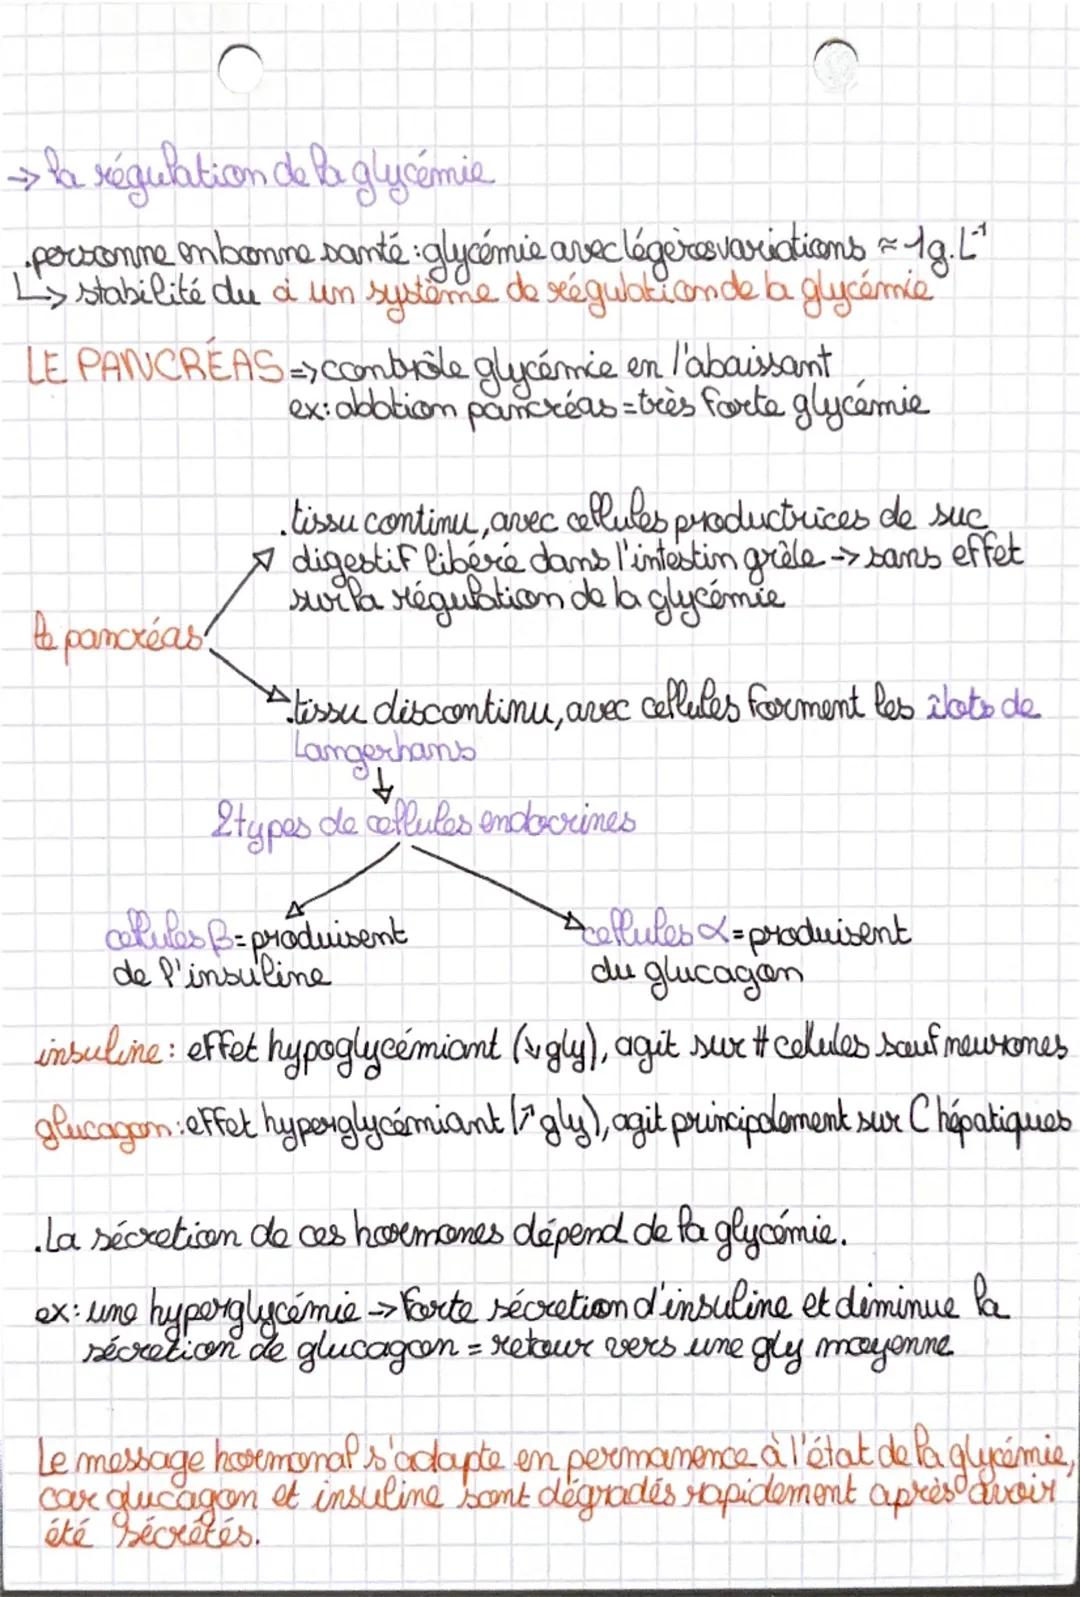 → la régulation de la glycémie
.personne en bonne santé : glycémie avec légères variations ≈ 1g.L⁻¹
↳ stabilité du à un système de régulation de la glycémie
LE PANCRÉAS => contrôle glycémie en l'abaissant
ex: ablation pancréas = très forte glycémie
.tissu continu, avec cellules productrices de suc
digestif libéré dans l'intestin grèle -> sans effet
sur la régulation de la glycémie
le pancréas
.tissu discontinu, avec cellules forment les îlots de
Langerhans
↓
2 types de cellules endocrines
cellules β = produisent
de l'insuline
cellules α = produisent
du glucagon
insuline : effet hypoglycémiant (↘ gly), agit sur # cellules sauf neurones
glucagon : effet hyperglycémiant (↗ gly), agit principalement sur C hépatiques
.La sécretion de ces hormones dépend de la glycémie.
ex: une hyperglycémie -> forte sécretion d'insuline et diminue la
sécretion de glucagon = retour vers une gly moyenne
Le message hormonal s'adapte en permanence à l'état de la glycémie,
car glucagon et insuline sont dégradés rapidement après avoir
été sécrétés.